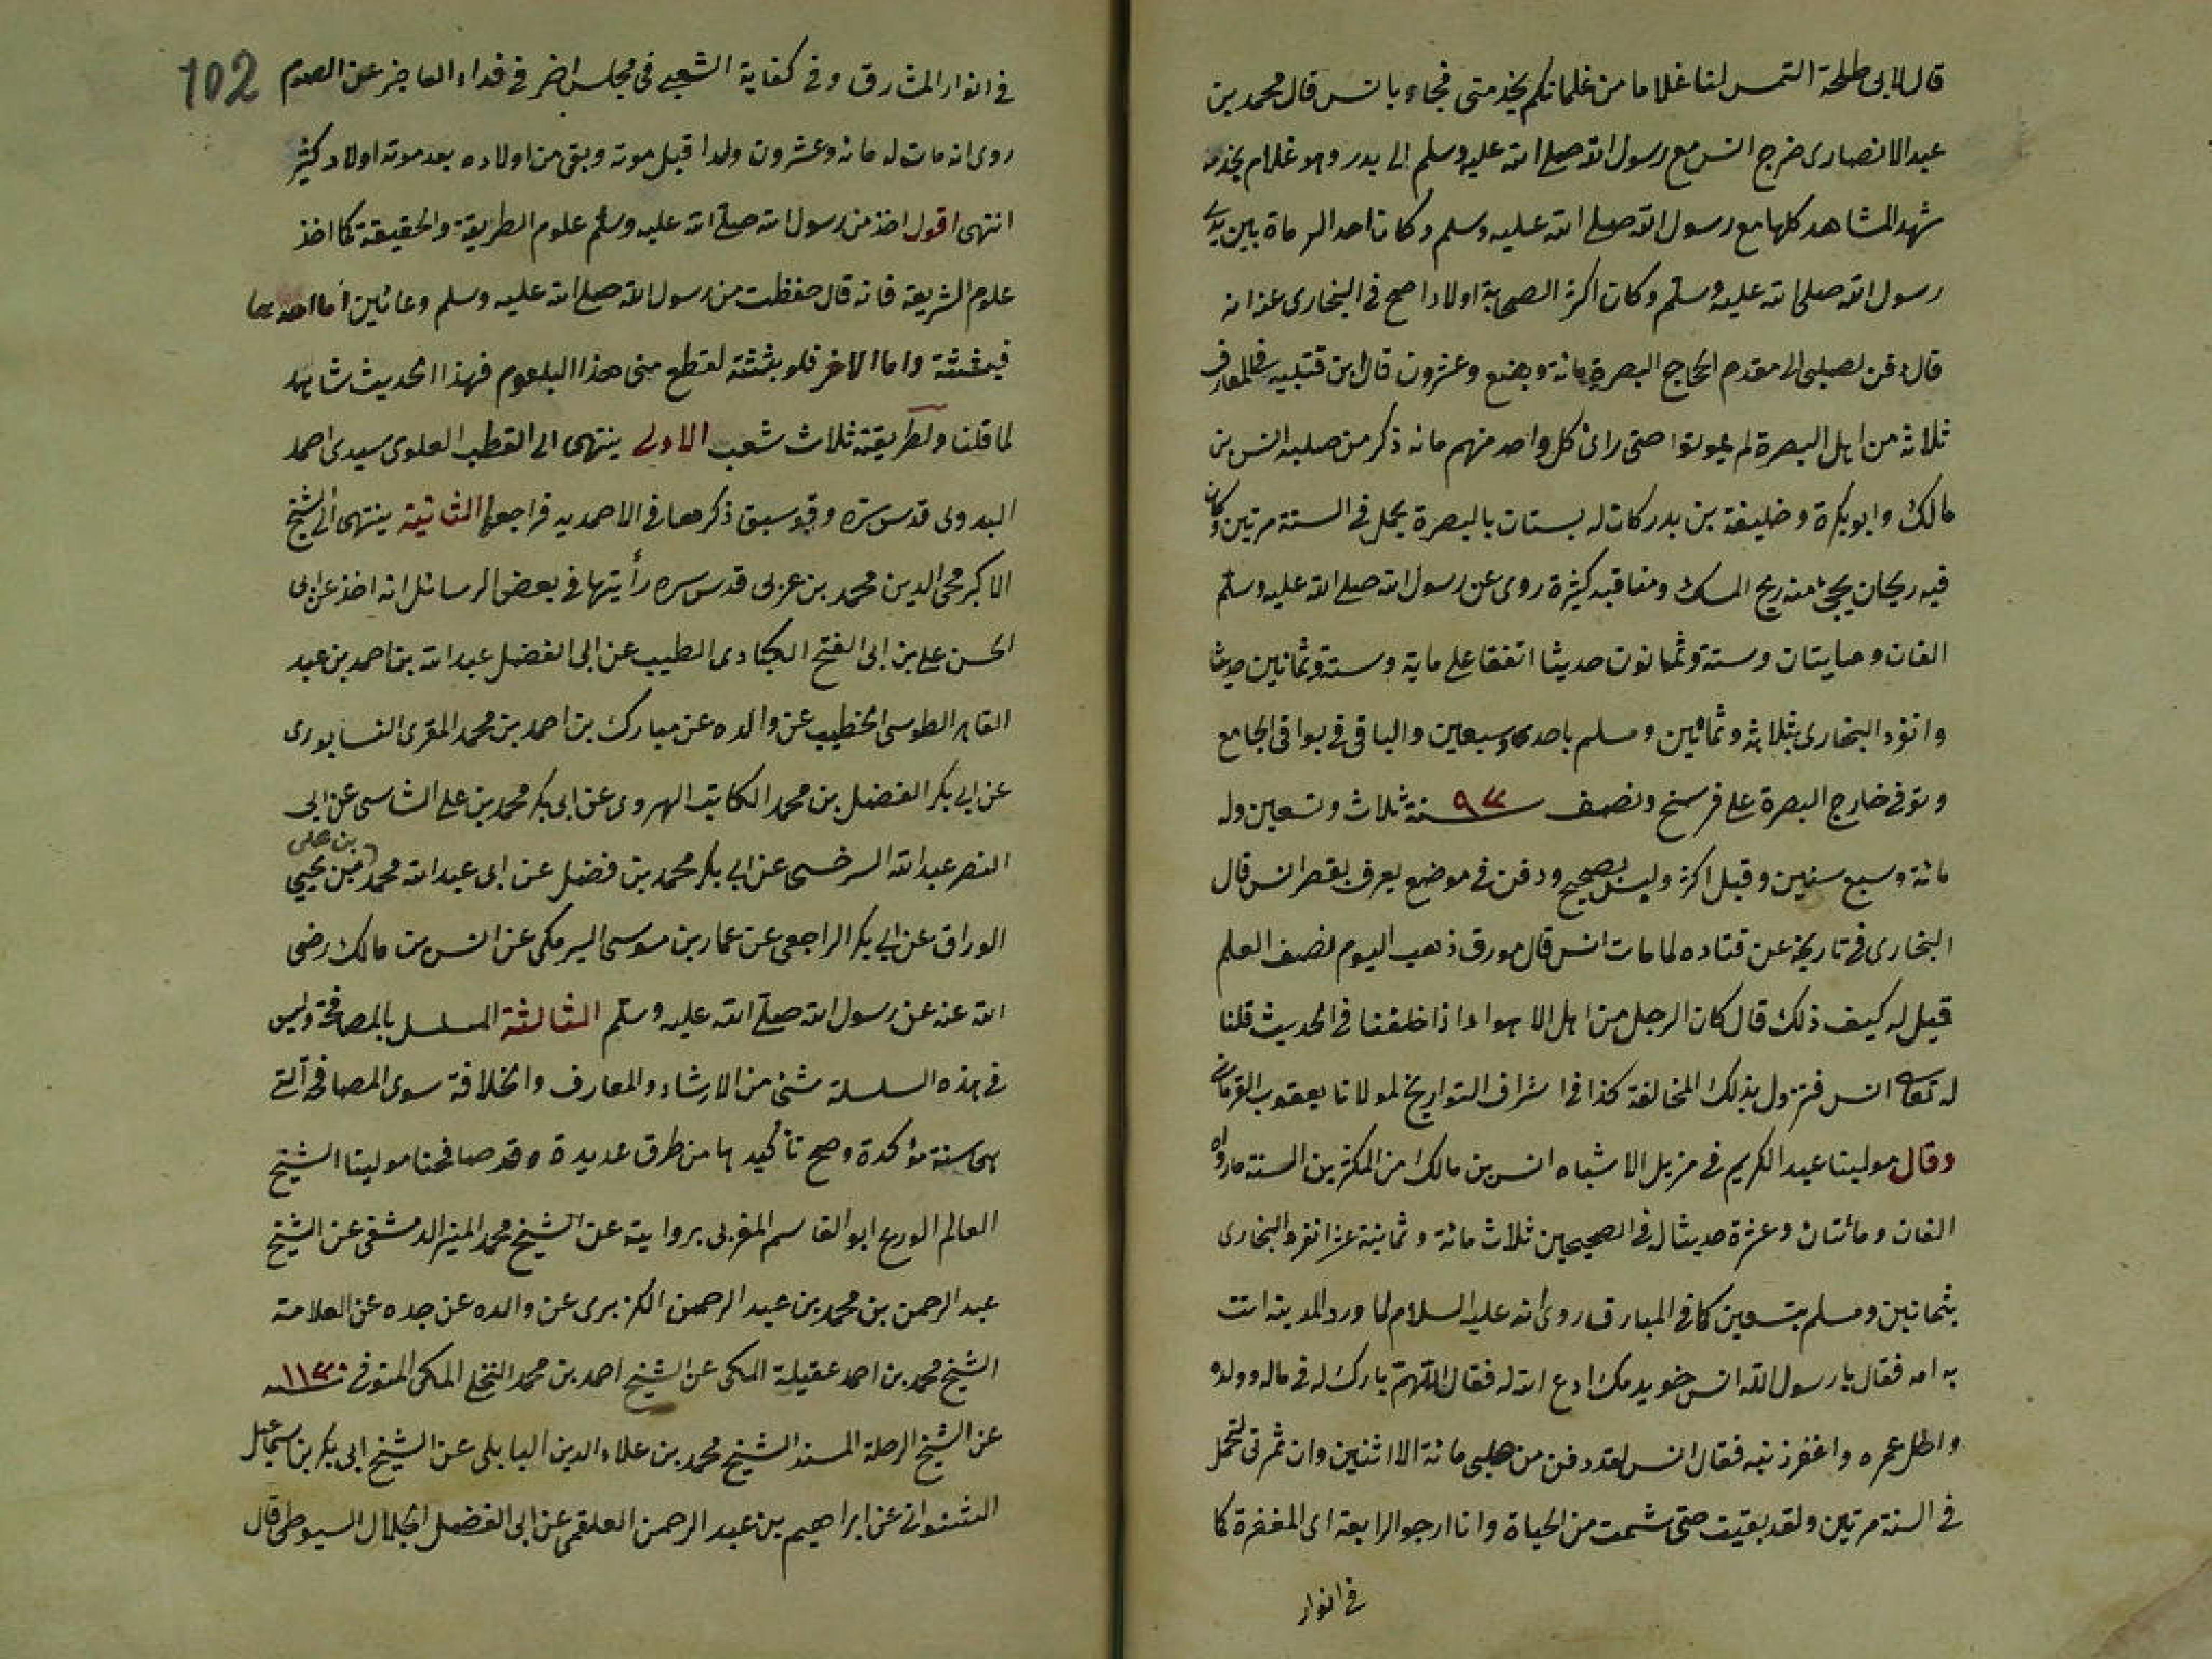 قال لابى طلحة التمس لنا غلاما من غلمانكم يخدمنى فجاء بانس قال محمد بن
عبد الانصارى خرج انس مع رسول الله صلى الله عليه وسلم الى بدر وهو غلام يخدمه
شهد المشاهد كلها مع رسول الله صلى الله عليه وسلم وكان احد الرماة بين يدى
رسول الله صلى الله عليه وسلم وكان اكثر الصحابة اولادا صح فى البخارى عنه انه
قال دفن لصلبى الى مقدم الحاج البصرة مائة وبضع وعشرون قال ابن قتيبة فى المعارف
ثلاثة من اهل البصرة لم يموتوا حتى راى كل واحد منهم مائه ذكر من صلبه انس بن
مالك وابو بكرة وخليفة بن بدر كان له بستان بالبصرة يحمل فى السنة مرتين وكان
فيه ريحان يجئ منه ريح المسك ومناقبه كثيرة روى عن رسول الله صلى الله عليه وسلم
الفان ومايتان وستة وثمانون حديثا اتفقا على ماية وستة وثمانين حديثا
وانفرد البخارى بثلاثه وثمانين ومسلم باحدى وسبعين والباقى فى بواقى الجامع
وتوفى خارج البصرة على فرسخ ونصف سنة ٩٣ ثلاث وتسعين وله
مائة وسبع سنين وقيل اكثر وليس بصحيح ودفن فى موضع يعرف بقصر انس قال
البخارى فى تاريخه عن قتاده لما مات انس قال مورق ذهب اليوم نصف العلم
قيل له كيف ذلك قال كان الرجل من اهل الاهواء اذا خالفنا فى الحديث قلنا
له تعال انس فتزول بذلك المخالفة كذا فى اشراف التواريخ لمولانا يعقوب القرمانى
وقال مولينا عبد الكريم فى مزيل الاشباه انس بن مالك من المكثرين الستة مارواه
الفان ومائتان وعشرة حديثا له فى الصحيحين ثلاث مائة وثمانية عشر انفرد البخارى
بثمانين ومسلم بتسعين كما فى المبارق روى انه عليه السلام لما ورد المدينة اتت
به امه فقال يا رسول الله انس خويدمك ادع الله له فقال اللهم بارك له فى ماله وولده
واطل عمره واغفر ذنبه فقال انس لقد دفن من صلبى مائة الا اثنين وان ثمرتى لتحمل
فى السنة مرتين ولقد بقيت حتى سئمت من الحياة وانا ارجو الرابعة اى المغفرة كما
فى انوار
102
فى انوار المشارق وفى كفاية الشعبى فى مجلس اخر فى فداء العاجز عن الصوم
روى انه مات له مائه وعشرون ولدا قبل موته وبقى من اولاده بعد موته اولاد كثير
انتهى اقول اخذ من رسول الله صلى الله عليه وسلم علوم الطريقة والحقيقة كما اخذ
علوم الشريعة فانه قال حفظت من رسول الله صلى الله عليه وسلم وعائين اما احدهما
فبثثته واما الاخر فلو بثثته لقطع منى هذا البلعوم فهذا الحديث شاهد
لما قلنا ولطريقته ثلاث شعب الاولى ينتهى الى القطب العلوى سيدى احمد
البدوى قدس سره وقد سبق ذكرها فى الاحمديه فراجعها الثانية ينتهى الى الشيخ
الاكبر محى الدين محمد بن عربى قدس سره رأيتها فى بعض الرسائل انه اخذ عن ابى
الحسن على بن ابى الفتح الكبارى الطبيب عن ابى الفضل عبد الله بن احمد بن عبد
القاهر الطوسى الخطيب عن والده عن مبارك بن احمد بن محمد المقرى النسابورى
عن ابى بكر الفضل بن محمد الكاتب الهروى عن ابى بكر محمد بن على الشاسى عن ابى
النصر عبد الله السرخسى عن ابى بكر محمد بن فضل عن ابى عبد الله محمد بن على بن يحيى
الوراق عن ابى بكر الراجعى عن عمار بن موسى البرمكى عن انس بن مالك رضى
الله عنه عن رسول الله صلى الله عليه وسلم الثالثة المسلسل بالمصافحة وليس
فى هذه السلسلة شئ من الارشاد والمعارف والخلافة سوى المصافحة التى
هى سنة مؤكدة وصح تأكيدها من طرق عديدة وقد صافحنا مولينا الشيخ
العالم الورع ابو القاسم المغربى بروايته عن الشيخ محمد المنير الدمشقى عن الشيخ
عبد الرحمن بن محمد بن عبد الرحمن الكزبرى عن والده عن جده عن العلامة
الشيخ محمد بن احمد عقيلة المكى عن الشيخ احمد بن محمد النخلى المكى المتوفى سنة ١١٣٠
عن الشيخ الرحلة المسند الشيخ محمد بن علاء الدين البابلى عن الشيخ ابى بكر بن اسماعيل
الشنوانى عن ابراهيم بن عبد الرحمن العلقمى عن ابى الفضل الجلال السيوطى قال